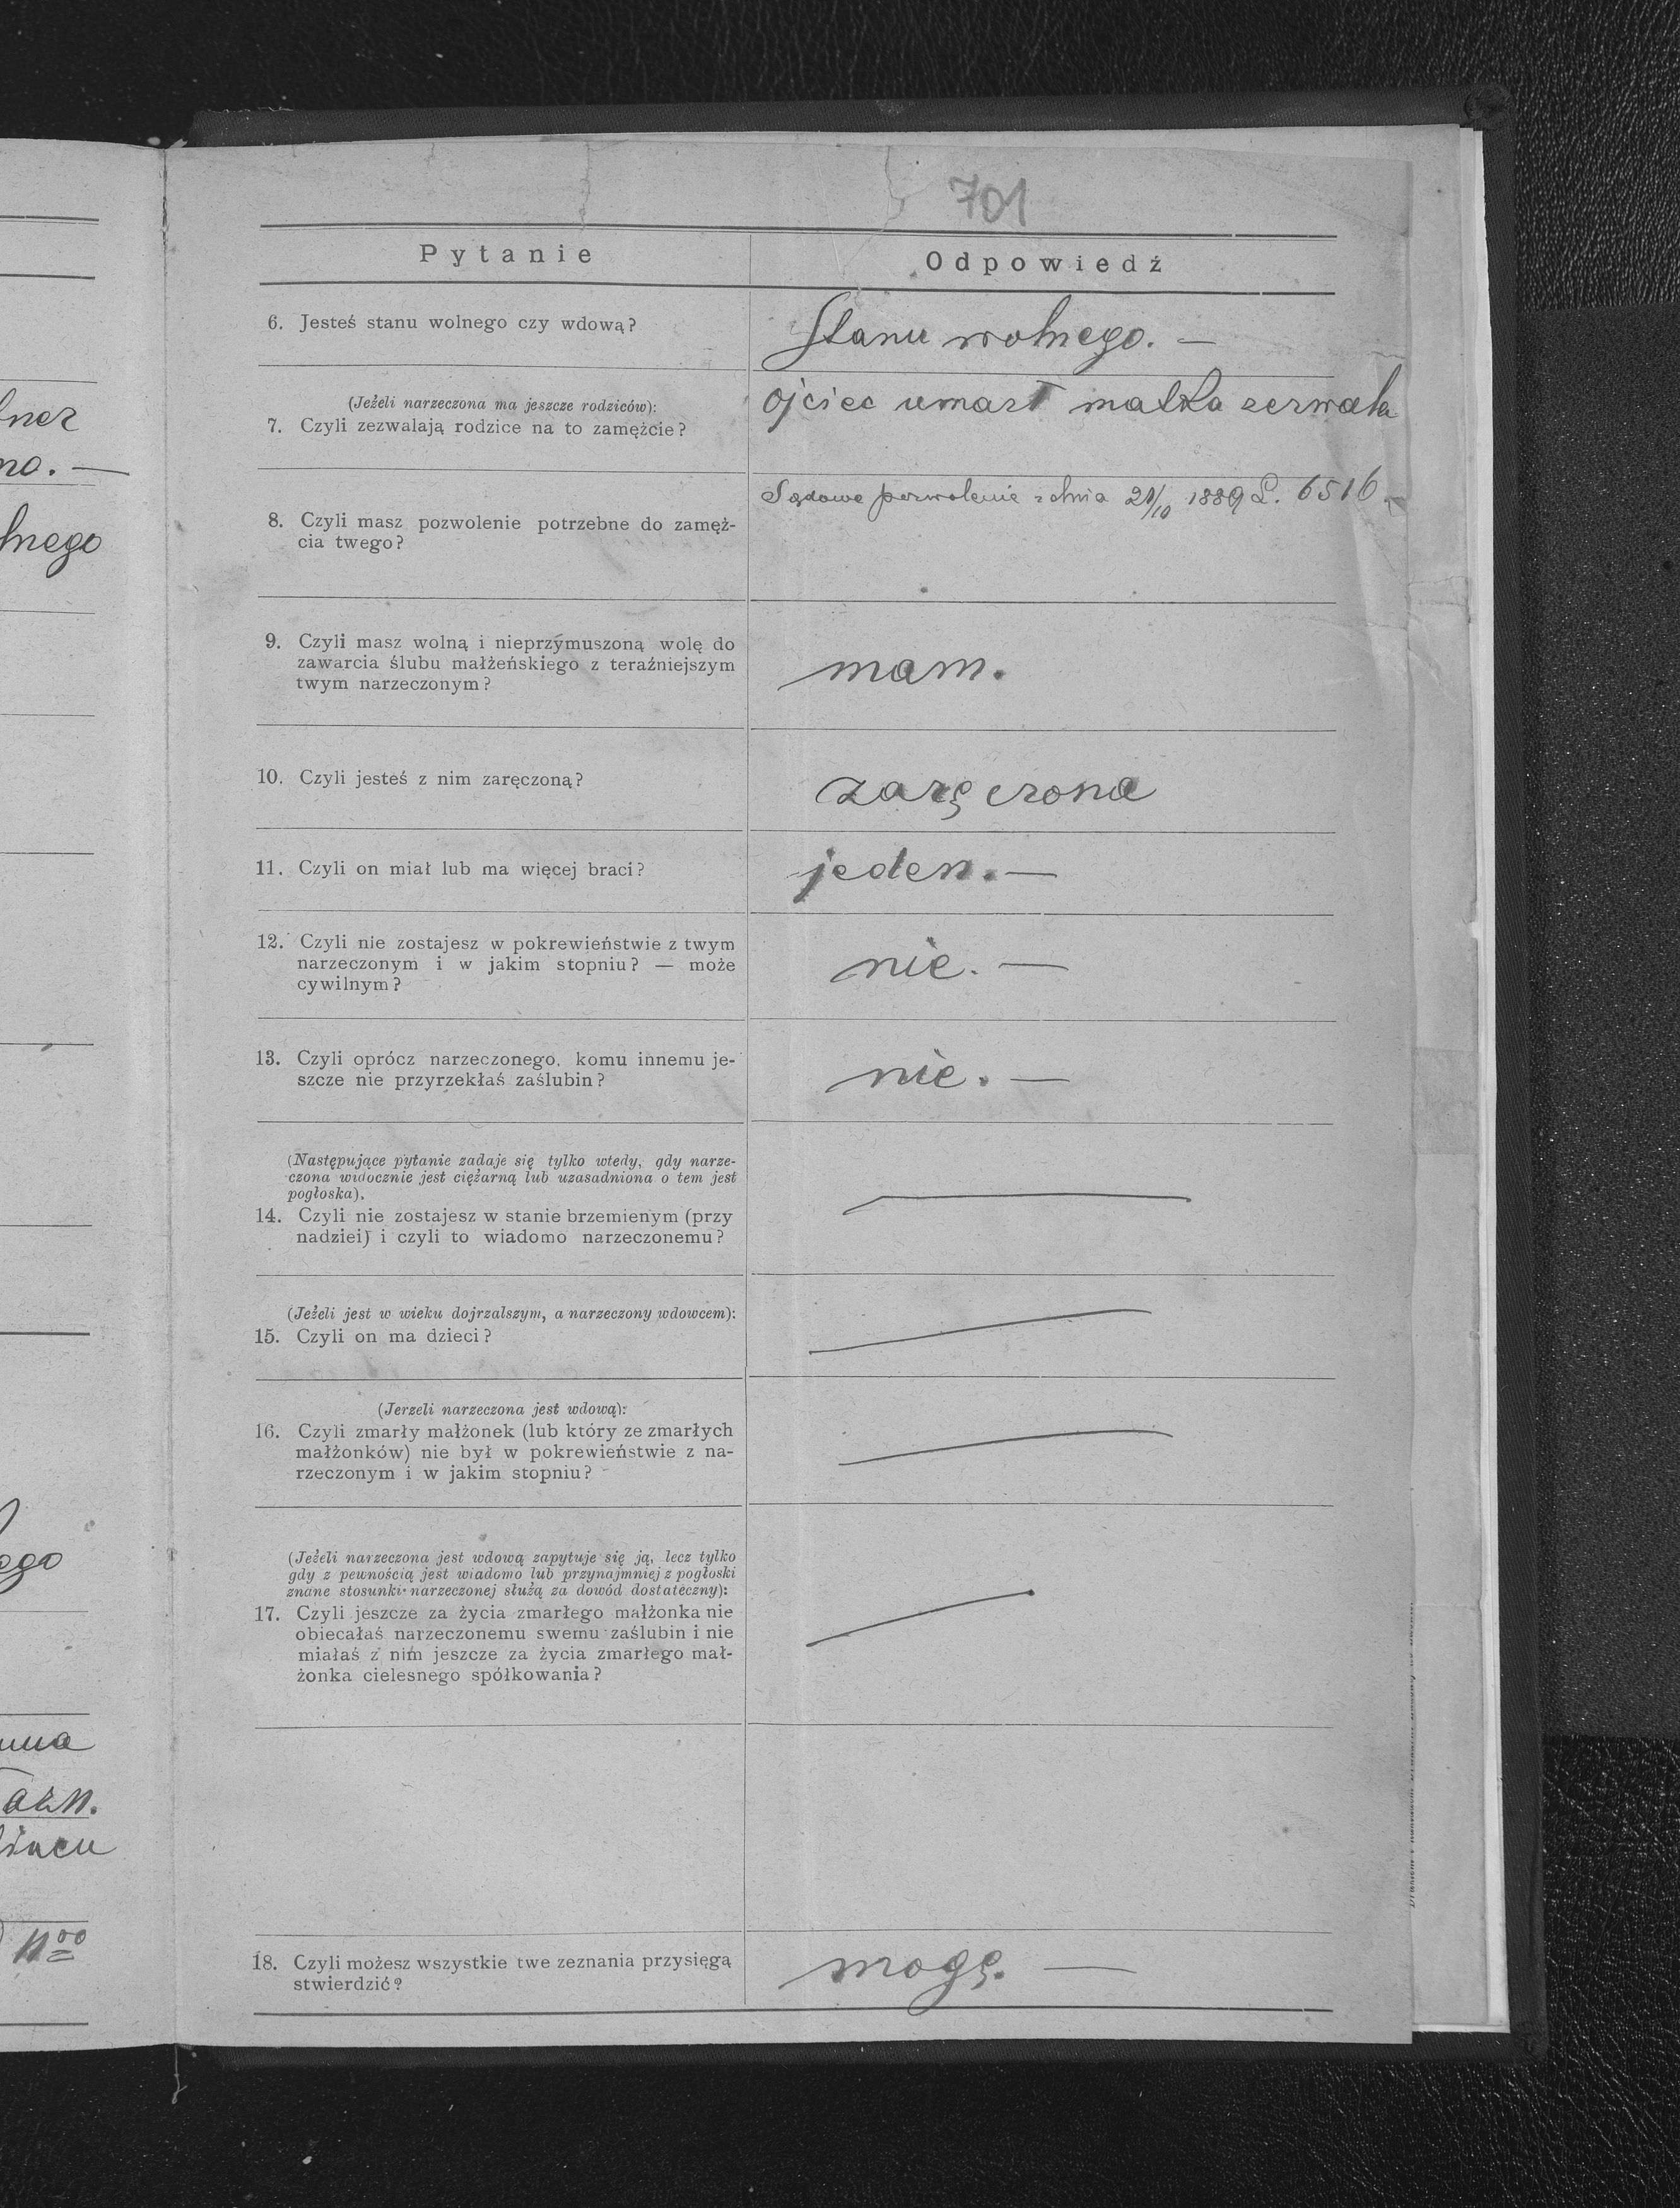 701
Pytanie
Odpowiedź
6. Jesteś stanu wolnego czy wdową?
Stanu wolnego. —
(Jeżeli narzeczona ma jeszcze rodziców):
7. Czyli zezwalają rodzice na to zamężcie?
ojciec umarł matka zezwala
8. Czyli masz pozwolenie potrzebne do zamęż-
cia twego?
Sądowe pozwolenie z dnia 21/10 1889 L. 6516 —
9. Czyli masz wolną i nieprzymuszoną wolę do
zawarcia ślubu małżeńskiego z teraźniejszym
twym narzeczonym?
mam.
10. Czyli jesteś z nim zaręczoną?
zaręczona
11. Czyli on miał lub ma więcej braci?
jeden. —
12. Czyli nie zostajesz w pokrewieństwie z twym
narzeczonym i w jakim stopniu? — może
cywilnym?
nie. —
13. Czyli oprócz narzeczonego, komu innemu je-
szcze nie przyrzekłaś zaślubin?
nie. —
(Następujące pytanie zadaje się tylko wtedy, gdy narze-
czona widocznie jest ciężarną lub uzasadniona o tem jest
pogłoska).
14. Czyli nie zostajesz w stanie brzemienym (przy
nadziei) i czyli to wiadomo narzeczonemu?
(Jeżeli jest w wieku dojrzalszym, a narzeczony wdowcem):
15. Czyli on ma dzieci?
(Jerzeli narzeczona jest wdową):
16. Czyli zmarły małżonek (lub który ze zmarłych
małżonków) nie był w pokrewieństwie z na-
rzeczonym i w jakim stopniu?
(Jeżeli narzeczona jest wdową zapytuje się ją, lecz tylko
gdy z pewnością jest wiadomo lub przynajmniej z pogłoski
znane stosunki narzeczonej służą za dowód dostateczny):
17. Czyli jeszcze za życia zmarłego małżonka nie
obiecałaś narzeczonemu swemu zaślubin i nie
miałaś z nim jeszcze za życia zmarłego mał-
żonka cielesnego spółkowania?
18. Czyli możesz wszystkie twe zeznania przysięgą
stwierdzić?
mogę. —